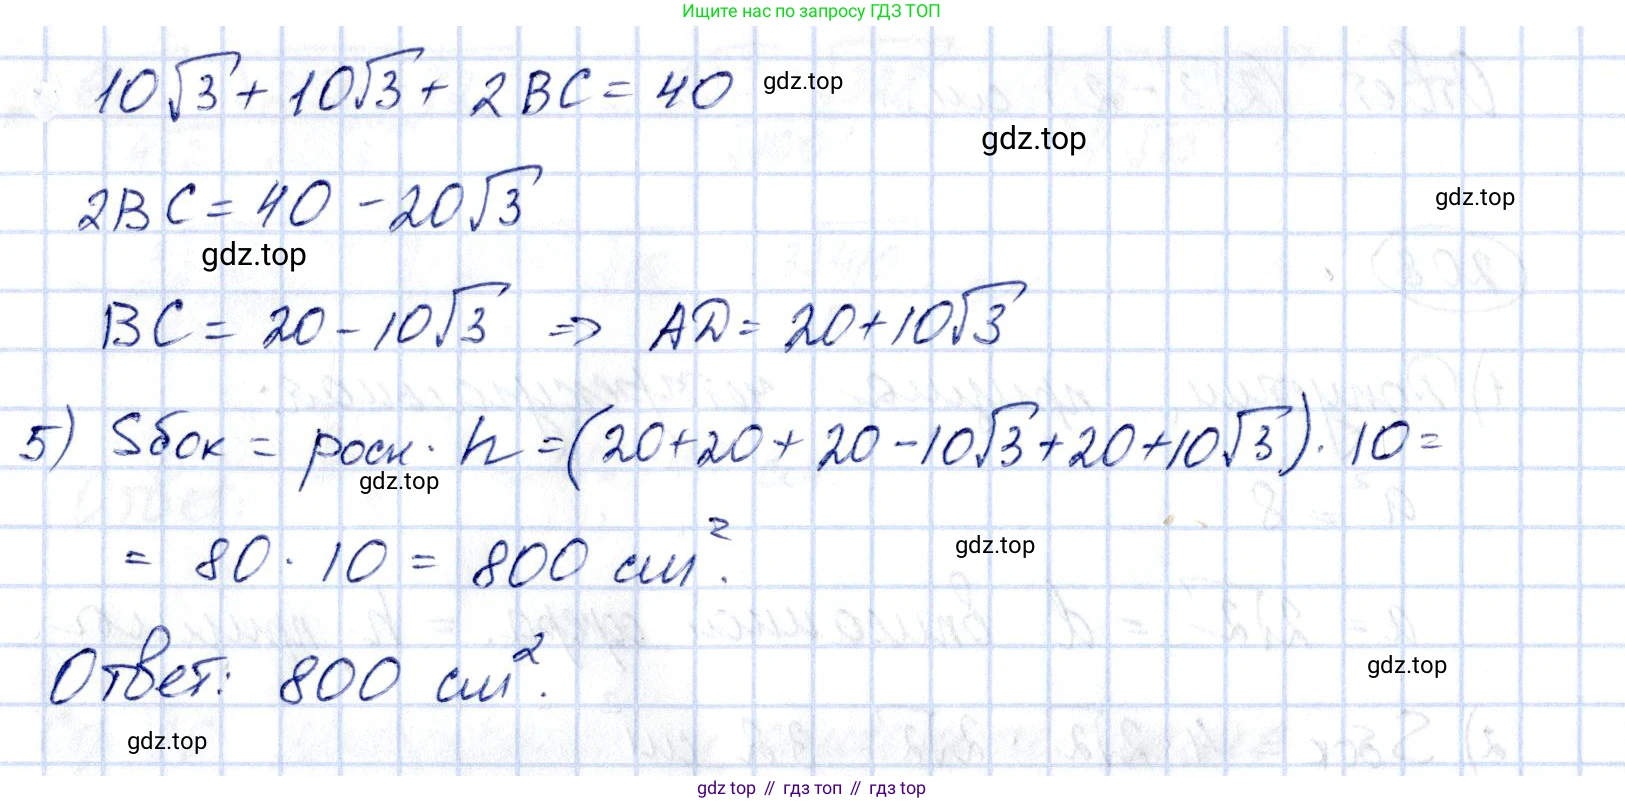 Ищите нас по запросу ГДЗ ТОП
10√3 + 10√3 + 2BC = 40
gdz.top
gdz.top
2BC = 40 - 20√3
gdz.top
gdz.top
BC = 20 - 10√3 => AD = 20 + 10√3
5) Sбок = pосн · h = (20 + 20 + 20 - 10√3 + 20 + 10√3) · 10 =
gdz.top
= 80 · 10 = 800 см².
gdz.top
Ответ: 800 см².
gdz.top
gdz.top
gdz top // гдз топ // gdz top